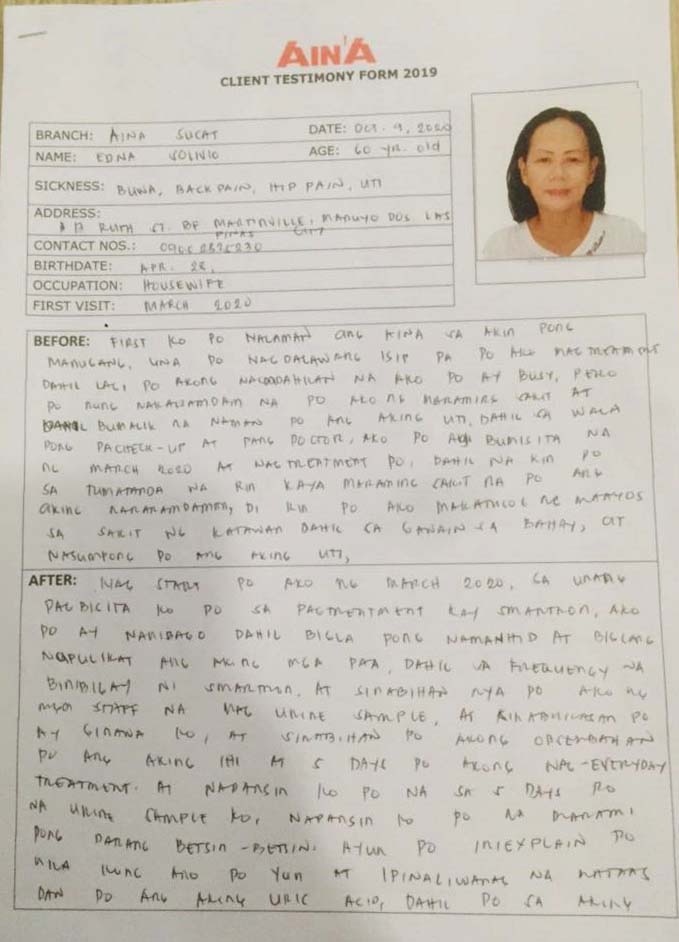 AIN'A
CLIENT TESTIMONY FORM 2019
BRANCH: AINA SUCAT DATE: OCT. 9, 2020
NAME: EDNA AGE: 60 YR. old
SICKNESS: BUNA, BACK PAIN, HIP PAIN, UTI
ADDRESS:
RUTH ST. BF MARTINVILLE, MANUYO DOS LAS
PIÑAS CITY
CONTACT NOS.:
BIRTHDATE: APR. 28,
OCCUPATION: HOUSEWIFE
FIRST VISIT: MARCH 2020
BEFORE: FIRST KO PO NALAMAN ANG AINA SA AKIN PONG
MANUGANG, UNA PO NAGDALAWANG ISIP PA PO AKO MAG TREATMENT
DAHIL LAGI PO AKONG NAGDADAHILAN NA AKO PO AY BUSY, PERO
PO NUNG NAKARAMDAM NA PO AKO NG MARAMING SAKIT AT
BUMALIK NA NAMAN PO ANG AKING UTI, DAHIL SA WALA
PONG PACHECK-UP AT PANG DOCTOR, AKO PO AY BUMISITA NA
NG MARCH 2020 AT NAG TREATMENT PO, DAHIL NA RIN PO
SA TUMATANDA NA RIN KAYA MARAMING SAKIT NA PO ANG
AKING NARARAMDAMAN, DI RIN PO AKO MAKATULOG NG MAAYOS
SA SAKIT NG KATAWAN DAHIL SA GAWAIN SA BAHAY, AT
NASUMPONG PO ANG AKING UTI,
AFTER: NAG START PO AKO NG MARCH 2020, SA UNANG
PAGBICITA KO PO SA PAGTREATMENT KAY SMARTRON, AKO
PO AY NANIBAGO DAHIL BIGLA PONG NAMANHID AT BIGLANG
NAPULIKAT ANG AKING MGA PAA, DAHIL SA FREQUENCY NA
BINIBIGAY NI SMARTRON, AT SINABIHAN NYA PO AKO NG
MGA STAFF NA MAG URINE SAMPLE, AT KINABUKASAN PO
AY GINAWA KO, AT SINABIHAN PO AKONG OBSERBAHAN
PO ANG AKING IHI AT 5 DAYS PO AKONG NAG-EVERYDAY
TREATMENT. AT NAPANSIN KO PO NA SA 5 DAYS PO
NA URINE SAMPLE KO, NAPANSIN KO PO NA MARAMI
PONG PARANG BETSIN-BETSIN. AYUN PO INIEXPLAIN PO
NILA KUNG ANO PO YUN AT IPINALIWANAG NA MATAAS
DAW PO ANG AKING URIC ACID, DAHIL PO SA AKING